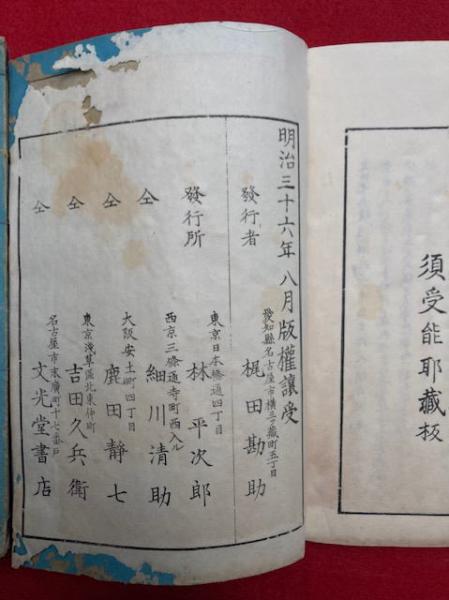 須受能耶藏板
明治三十六年八月版權讓受
發行者
愛知縣名古屋市横三ツ藏町五丁目
梶田勘助
發行所
東京日本橋通四丁目
林平次郎
仝
西京三條通寺町西入ル
細川清助
仝
大阪安土町四丁目
鹿田靜七
仝
東京淺草區北東仲町
吉田久兵衛
仝
名古屋市末廣町十七番戸
文光堂書店